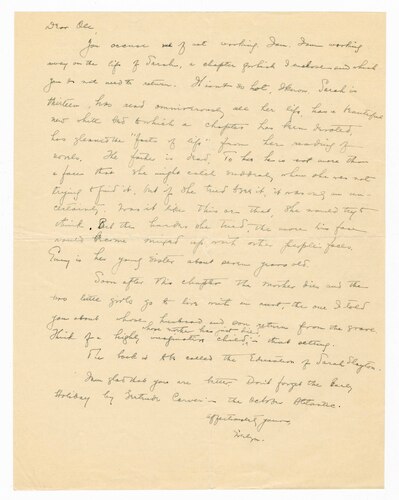 Dear Ole,
You accuse me of not working. I am. I am working
away on the life of Sarah, a chapter of which I enclose and which
you do not need to return. It is not so hot, I know. Sarah is
thirteen, has read omnivorously all her life, has a beautiful
new white bed to which a chapter has been devoted,
has gleaned the "facts of life" from her reading of
novels. The father is dead. To her he is not more than
a face that she might catch suddenly when she was not
trying to find it. But if she tried for it, it was only an un-
certainty. Was it like this or that, she would try to
think. But the harder she tried, the more his face
would become mixed up with other people's faces.
is her young sister about seven years old.
Soon after this chapter the mother dies and the
two little girls go to live with an aunt, the one I told
you about whose husband and son return from the grave.
whose mother has not died
Think of a highly imaginative child in that setting.
The book is to be called the Education of Sarah
I am glad that you are better. Don't forget the
Holiday by Gertrude in the October Atlantic.
Affectionately yours